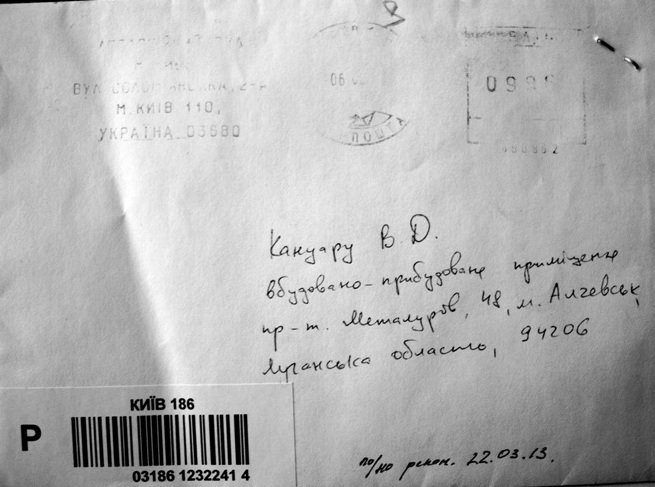 ВУЛ. СОЛОМ'ЯНСЬКА, 2-А
М. КИЇВ 110,
УКРАЇНА 03680
06
ПОШТА
Кануару В Д.
вбудовано-прибудоване приміщення
пр-т. Металургів, 48, м. Алчевськ,
Луганська область, 94206
КИЇВ 186
P
03186 1232241 4
22.03.13.